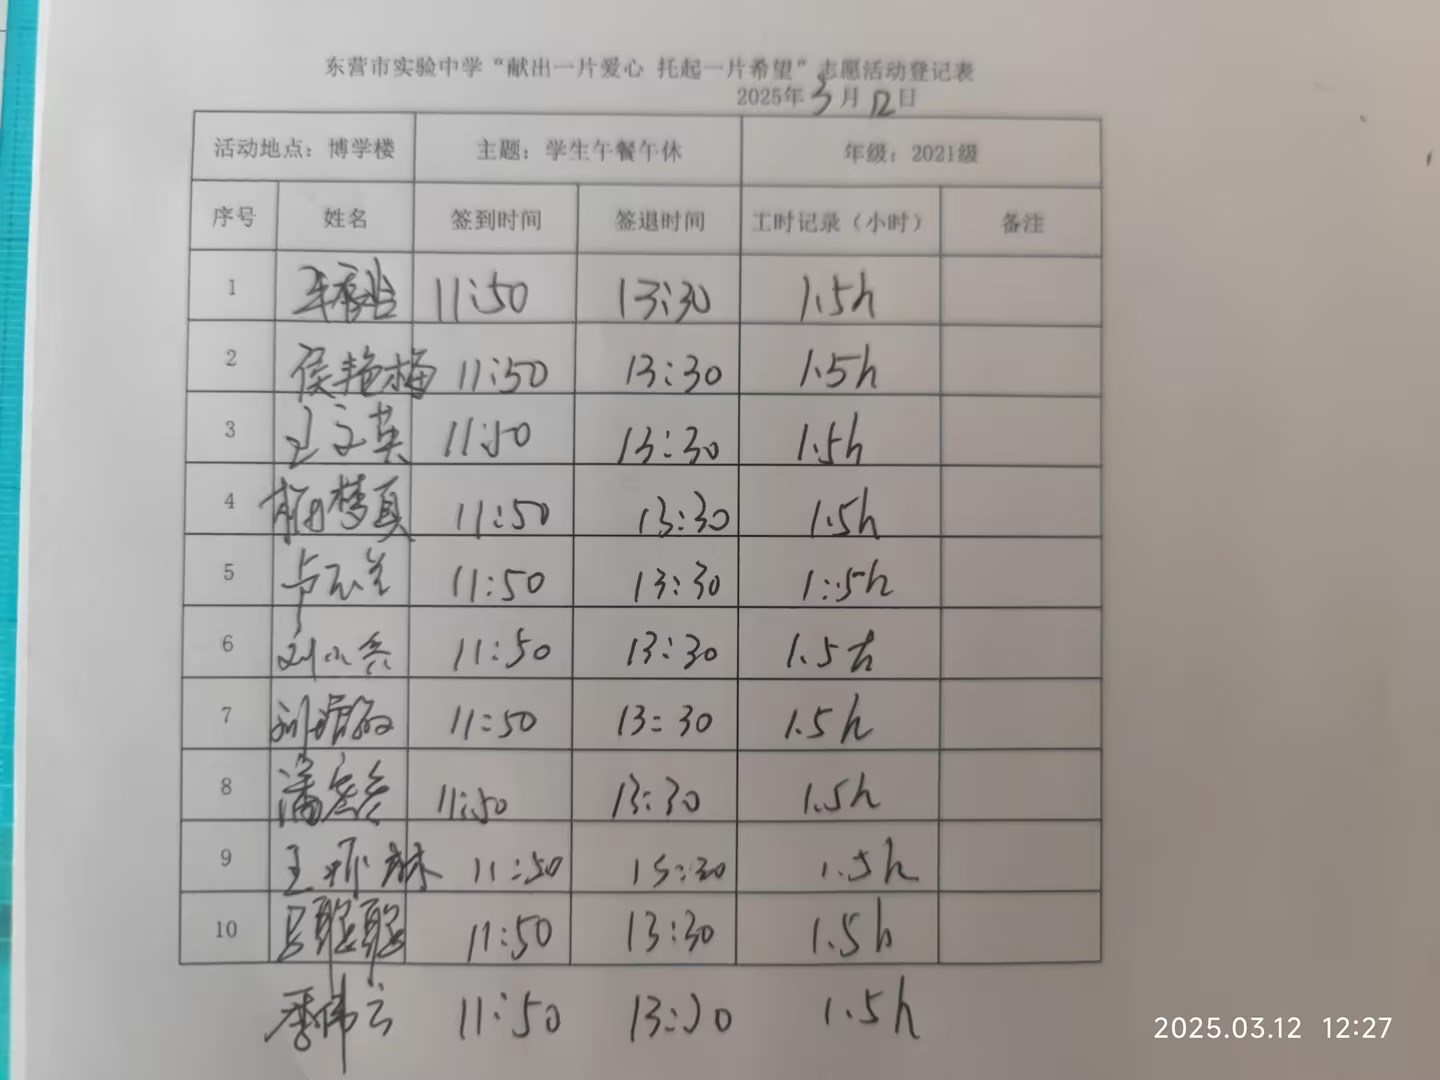 东营市实验中学“献出一片爱心 托起一片希望”志愿活动登记表
2025年3月12日
活动地点：博学楼 主题：学生午餐午休 年级：2021级
序号 姓名 签到时间 签退时间 工时记录（小时） 备注
1 11:50 13:30 1.5h
2 侯艳梅 11:50 13:30 1.5h
3 王文英 11:50 13:30 1.5h
4 11:50 13:30 1.5h
5 11:50 13:30 1:.5h
6 刘小兵 11:50 13:30 1.5h
7 11:50 13:30 1.5h
8 潘 11:50 13:30 1.5h
9 王 11:50 13:30 1.5h
10 吕聪聪 11:50 13:30 1.5h
季伟云 11:50 13:30 1.5h
2025.03.12 12:27